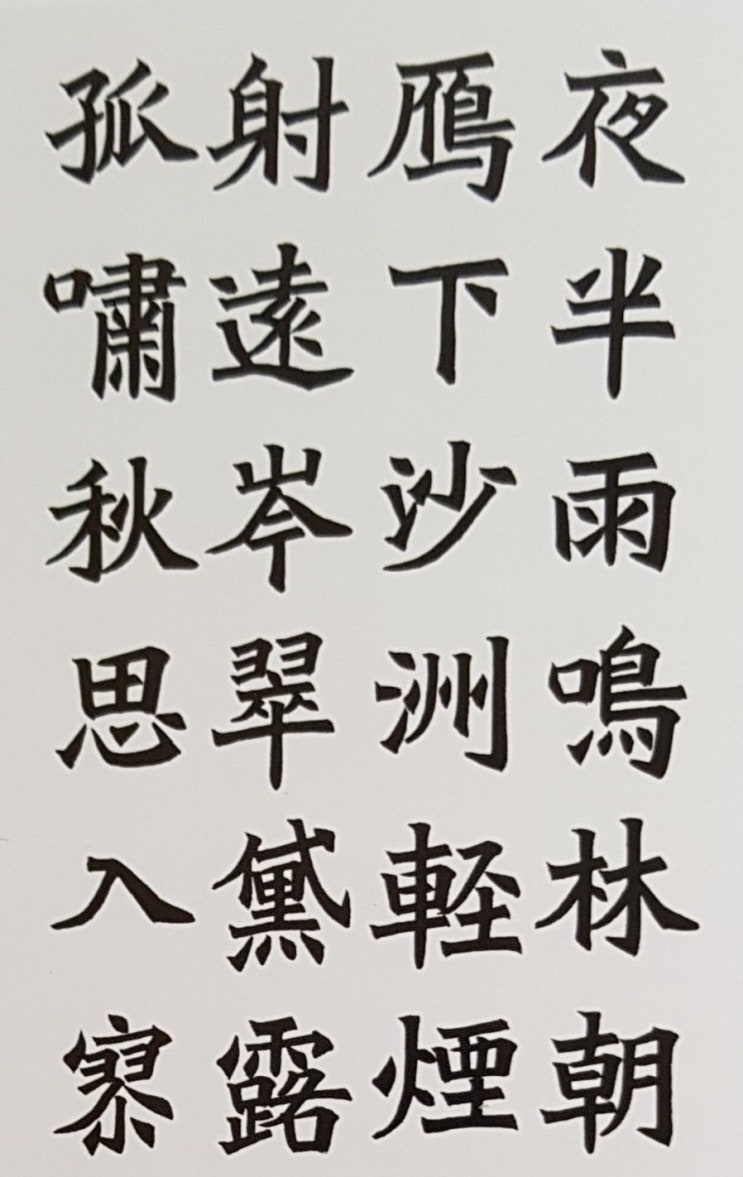 夜半雨鳴林朝
鴈下沙洲軽煙
射遠岑翠黛露
孤嘯秋思入寥